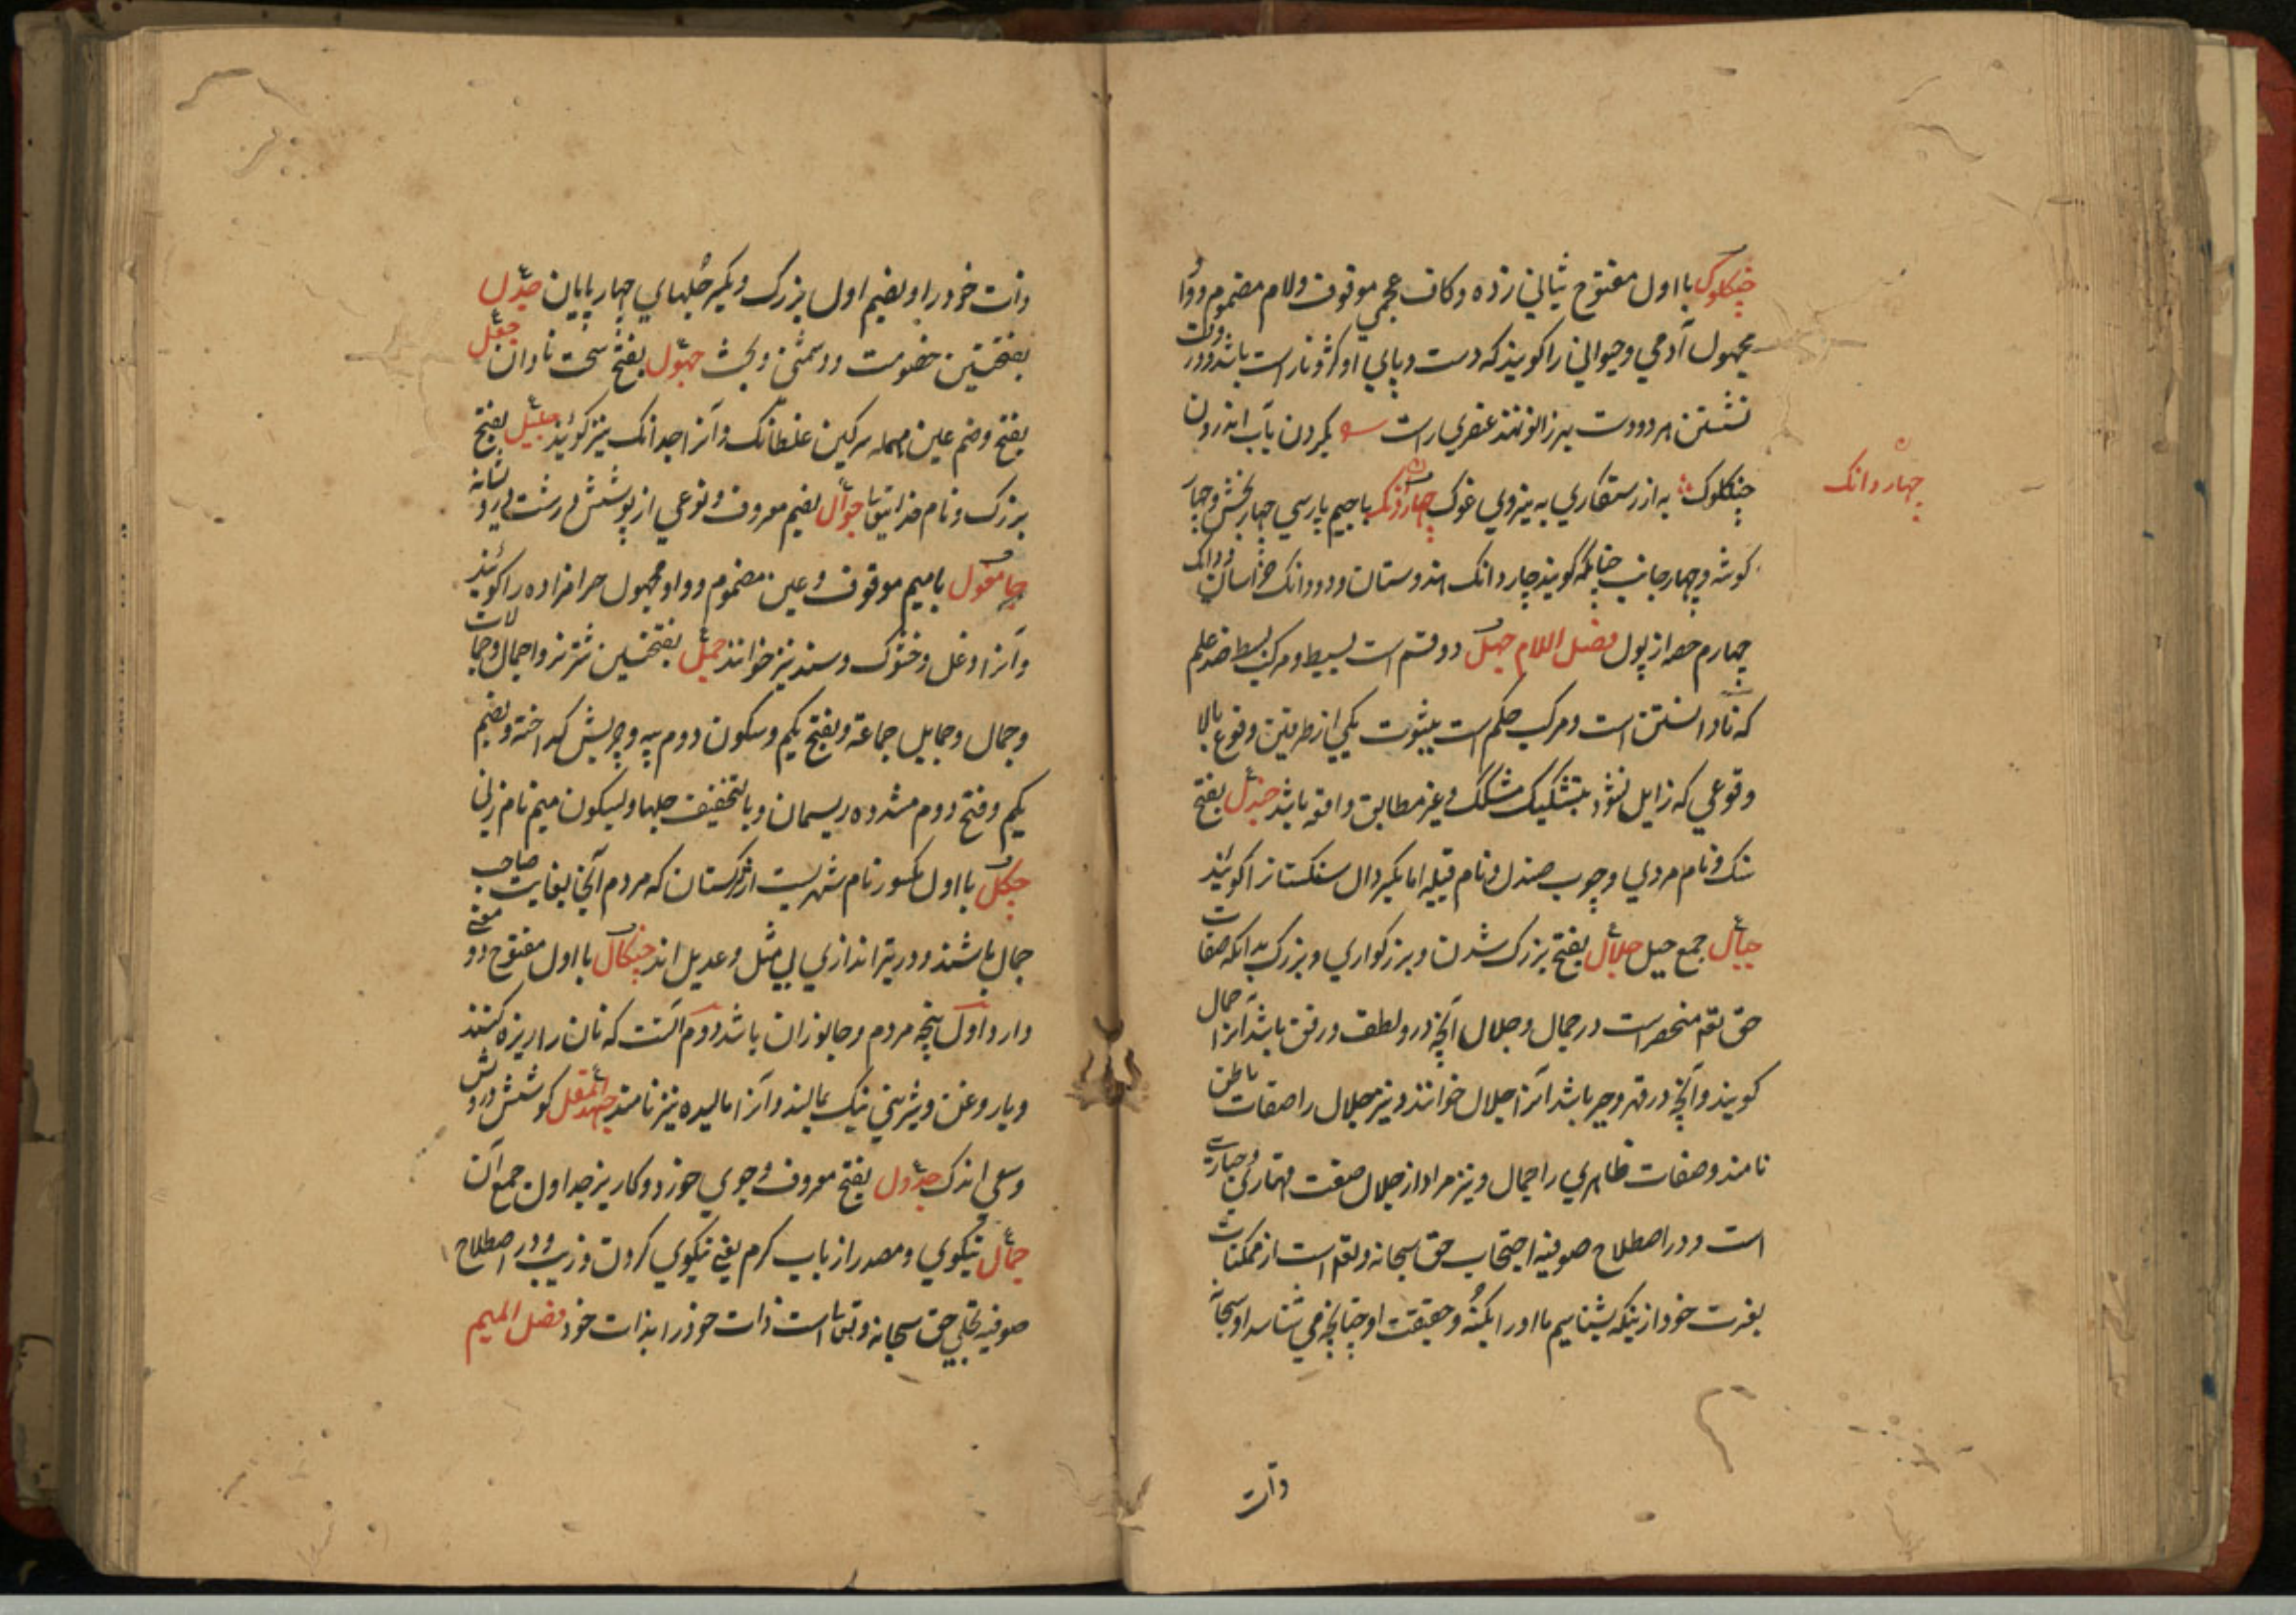 چنکلوک با اول مفتوح بثاني زده وکاف عجمي موقوف ولام مضموم وواو
مجهول آدمي وحيواني را کويند که دست وپاي او کژ وناراست باشد ودر وقت
نشستن هر دو دست بر زانو نهند عنصري راست بکردن بآب اندرون
چنکلوک به از رستکاري به نيروي غوک چهاردانک باجيم پارسي چهار بخش وچهار
چهاردانک
کوشه وچهار جانب چنانکه کويند چاردانک هندوستان ودودانک خراسان ودانک
چهارم حصه از پول فصل اللام جهل دو قسم است بسيط ومرکب بسيط ضد علم
که نادانستن است ومرکب حکم است بثبوت يکي از طرفين وقوع يالا
وقوعي که زايل نشود بتشکيک مشکک وغير مطابق واقع باشد جندل بفتح
سنک ونام مردي وچوب صندل ونام قبيله اما بکسر دال سنکستان را کويند
جبال جمع جبل جلال بفتح بزرک شدن وبزرکواري وبزرک بدانکه صفات
حق تعم منحصر است در جمال وجلال آنچه در و لطف ورفق باشد آنرا جمال
کويند وآنچه در قهر وجبر باشد آنرا جلال خوانند ونيز جلال را صفات باطن
نامند وصفات ظاهري را جمال ونيز مراد از جلال صفت قهاري وجباري
است ودر اصطلاح صوفيه احتجاب حق سبحانه وتعم است از ممکنات
بعزت خود از ينکه بشناسيم ما او را بکنه وحقيقت او چنانچه مي شناسد او سبحانه
ذات
ذات خود را وبضم اول بزرک وبکسر جلهاي چهار پايان جدل
بفتحتين خصومت ودشمني وبحث جهول بفتح سخت نادان جعل
بفتح وضم عين مهمله سرکين غلطانک وآنرا جدانک نيز کويند جليل بفتح
بزرک ونام خداي تعالي جوال بضم معروف ونوعي از پوشش درشت
چامغول باميم موقوف وغين مضموم وواو مجهول حرامزاده را کويند
وآنرا دغل وخشوک وسند نيز خوانند جمل بفتحتين شتر نر واجمال وجمالات
وجمال وجمايل جماعة وبفتح يکم وسکون دوم پيه وچربش کداخته وبضم
يکم وفتح دوم مشدده ريسمان وبالتخفيف جلها وبسکون ميم نام زني
چکل با اول مکسور نام شهريست از ترکستان که مردم آنجا بغايت صاحب
جمال باشند ودر تيراندازي بي مثل وعديل اند چنکال با اول مفتوح دو معني
دارد اول پنجه مردم وجانوران باشد دوم آنست که نان را ريزه کنند
وبا روغن وشيريني نيک بمالند وآنرا ماليده نيز نامند جهد المقل کوشش درويش
وسعي اندک جدول بفتح معروف وجوي خورد وکاريز جداول جمع آن
جمال نيکوي ومصدر از باب کرم يعني نيکوي کردن وزيب ودر اصطلاح
صوفيه تجلي حق سبحانه وتعالي است ذات خود را بذات خود فصل الميم